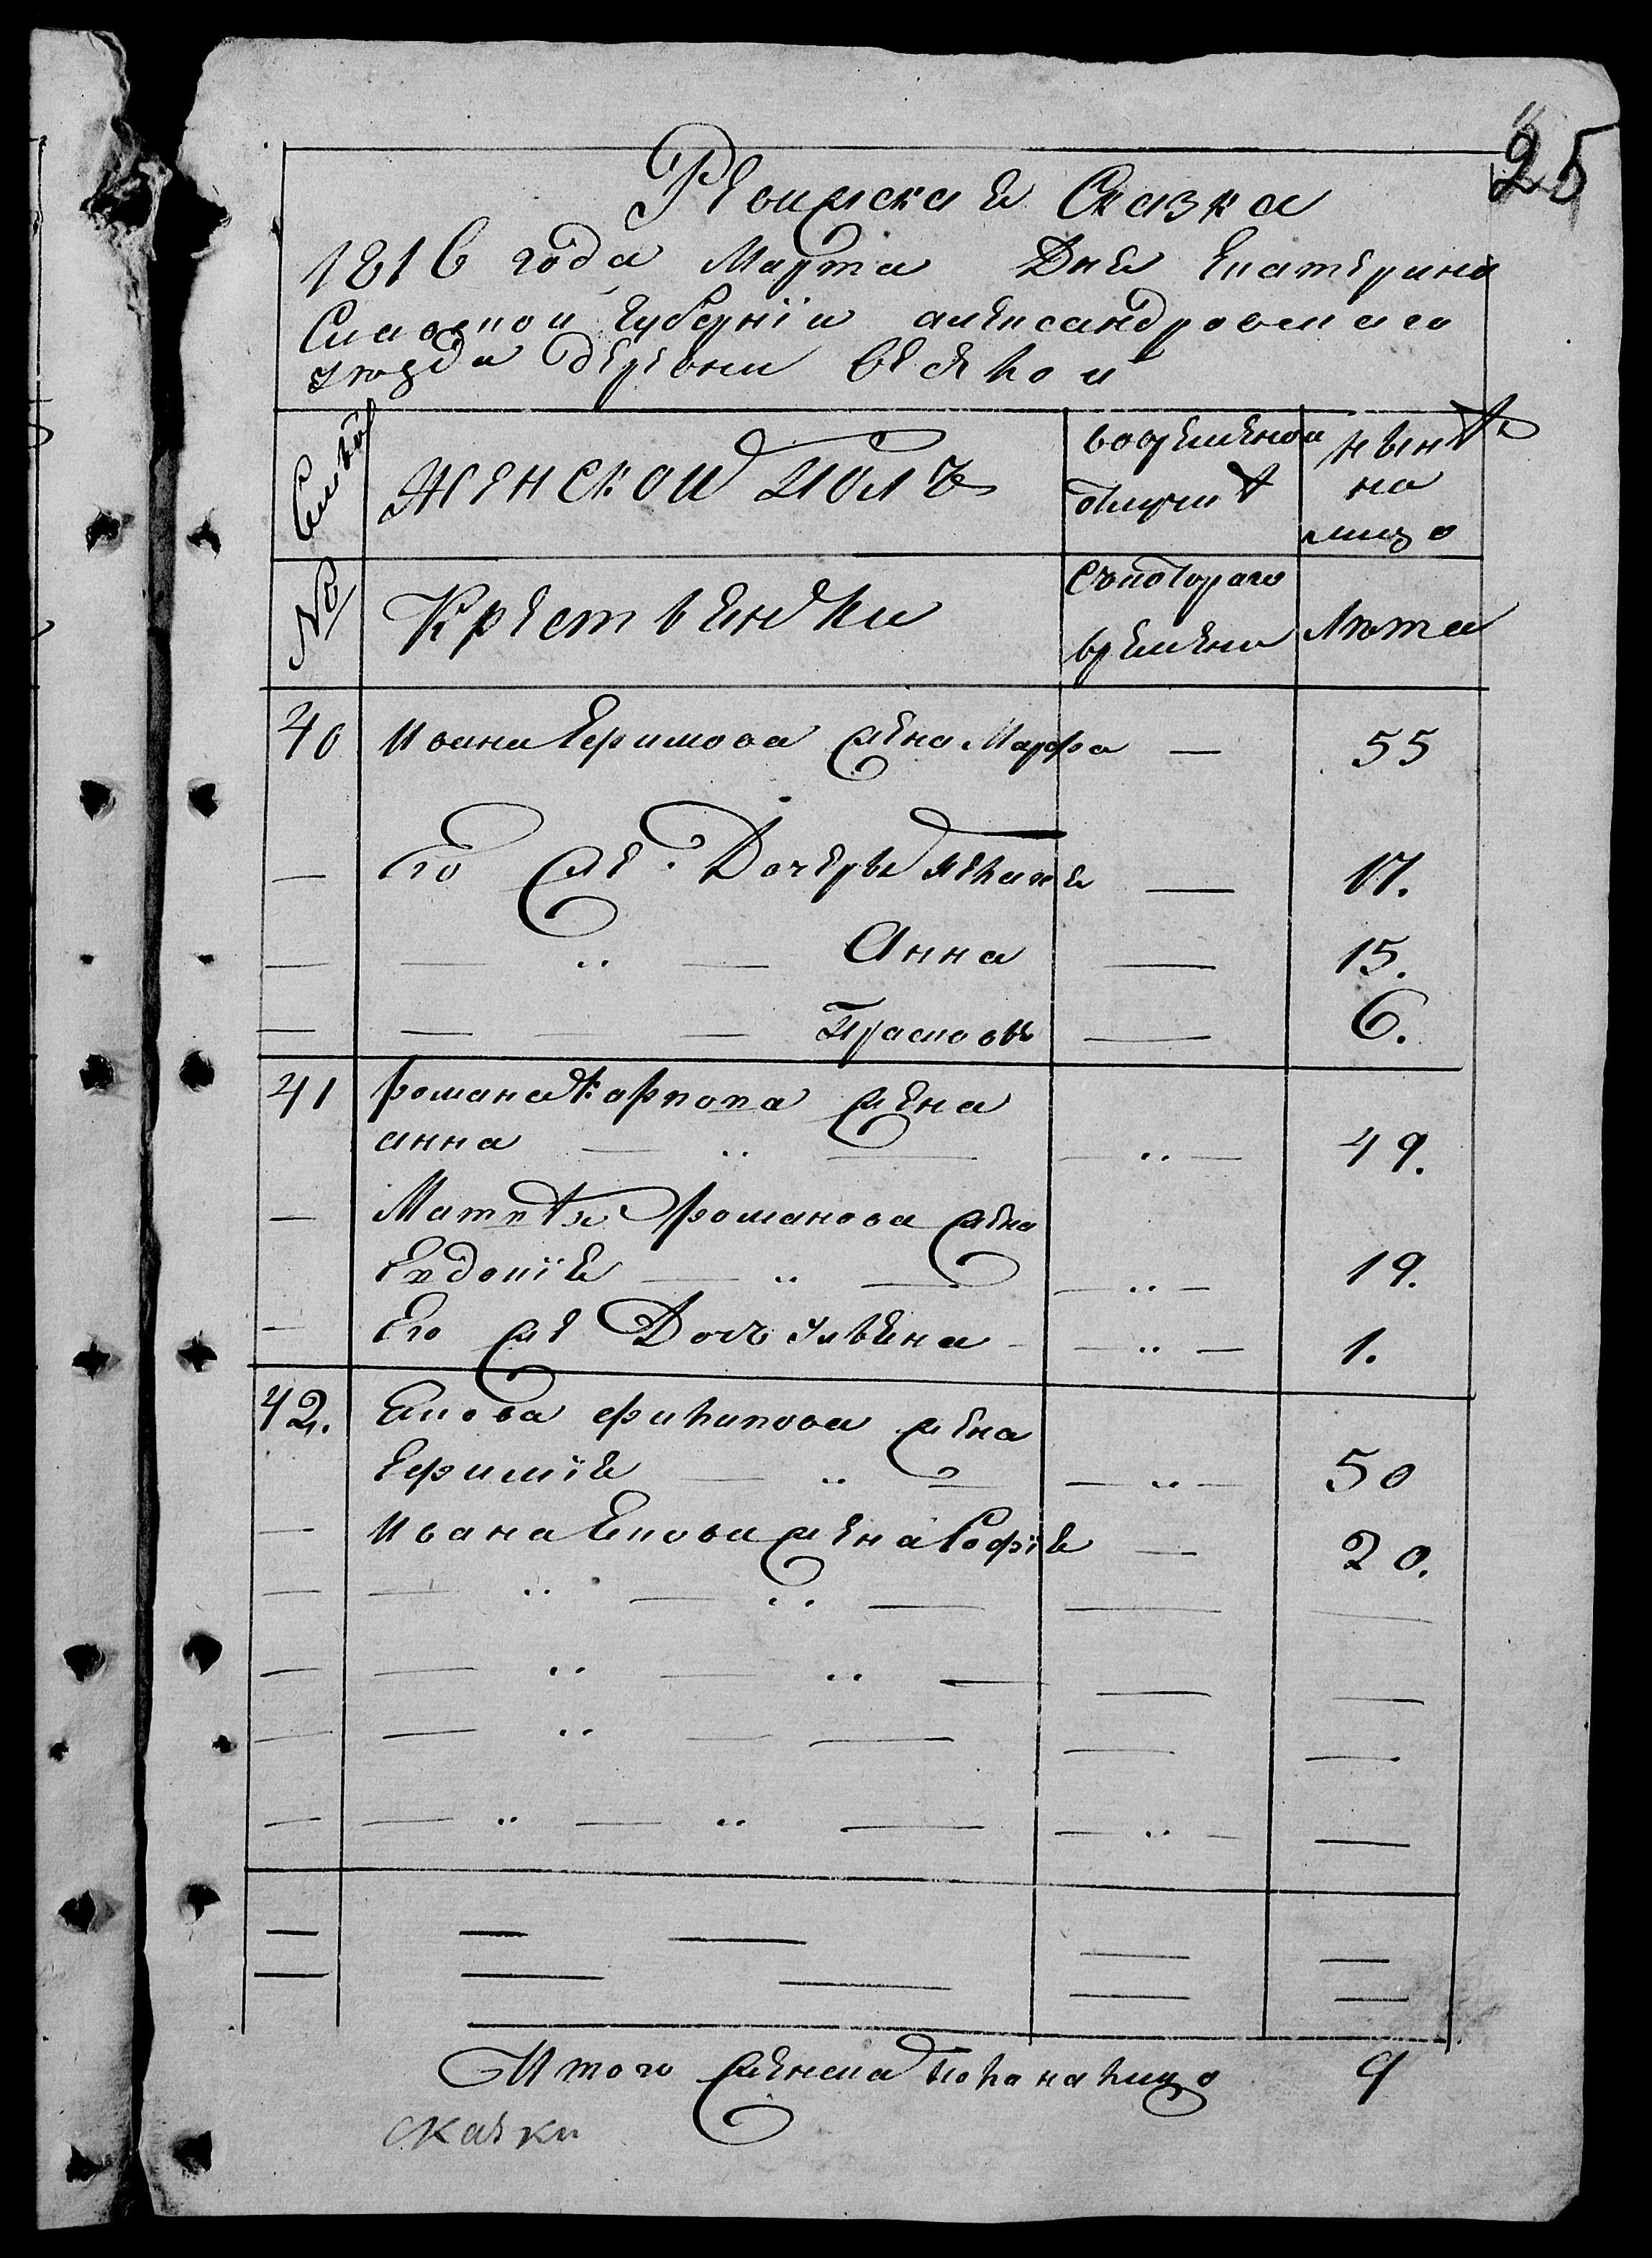 25
Ревижская Сказка
1816 года Марта Дня Екатерино
Славской губернїи александровскаго
уезда деревни белѣной
Семьи
женской полъ
вовременной
отлучкѣ
нынѣ
на
лицо
№
Крестьянки
Съкотораго
времени
Лѣта
40 Ивана Ефимова жена Марфа — 55
— Его же Дочеря — 17.
— — — Анна — 15.
— — — — Прасковя — 6.
41 романа карпова жена
анна — — — — 49.
— Матвѣя романова жена
Евдокїя — — — — 19.
— Его же Дочь ульяна — — — 1.
42. Якова филипова жена
Ефимїя — — — — 50
— Ивана Якова жена Софїя — 20.
Итого женска пола налицо 9
скачки